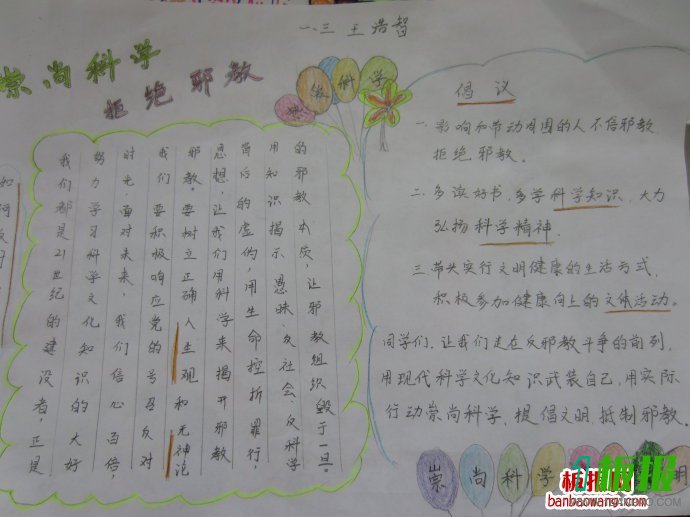 一.三 王浩智
崇尚科学
拒绝邪教
科学
我们都是21世纪的建设者,正是
努力学习科学文化知识的大好
时光面对未来,我们信心百倍,
我们要积极响应党的号召反对
邪教。要树立正确人生观和无神论
思想,让我们用科学来揭开邪教
背后的虚伪,用生命控折罪行,
用知识揭示愚昧、反社会、反科学
的邪教本质,让邪教组织毁于一旦。
倡议
一.影响和带动周围的人不信邪教
拒绝邪教。
二.多读好书,多学科学知识,大力
弘扬科学精神.
三.带头实行文明健康的生活方式,
积极参加健康向上的文体活动。
同学们,让我们走在反邪教斗争的前列,
用现代科学文化知识武装自己,用实际
行动崇尚科学,提倡文明抵制邪教.
崇尚科学
明
板报
banbaowang.com